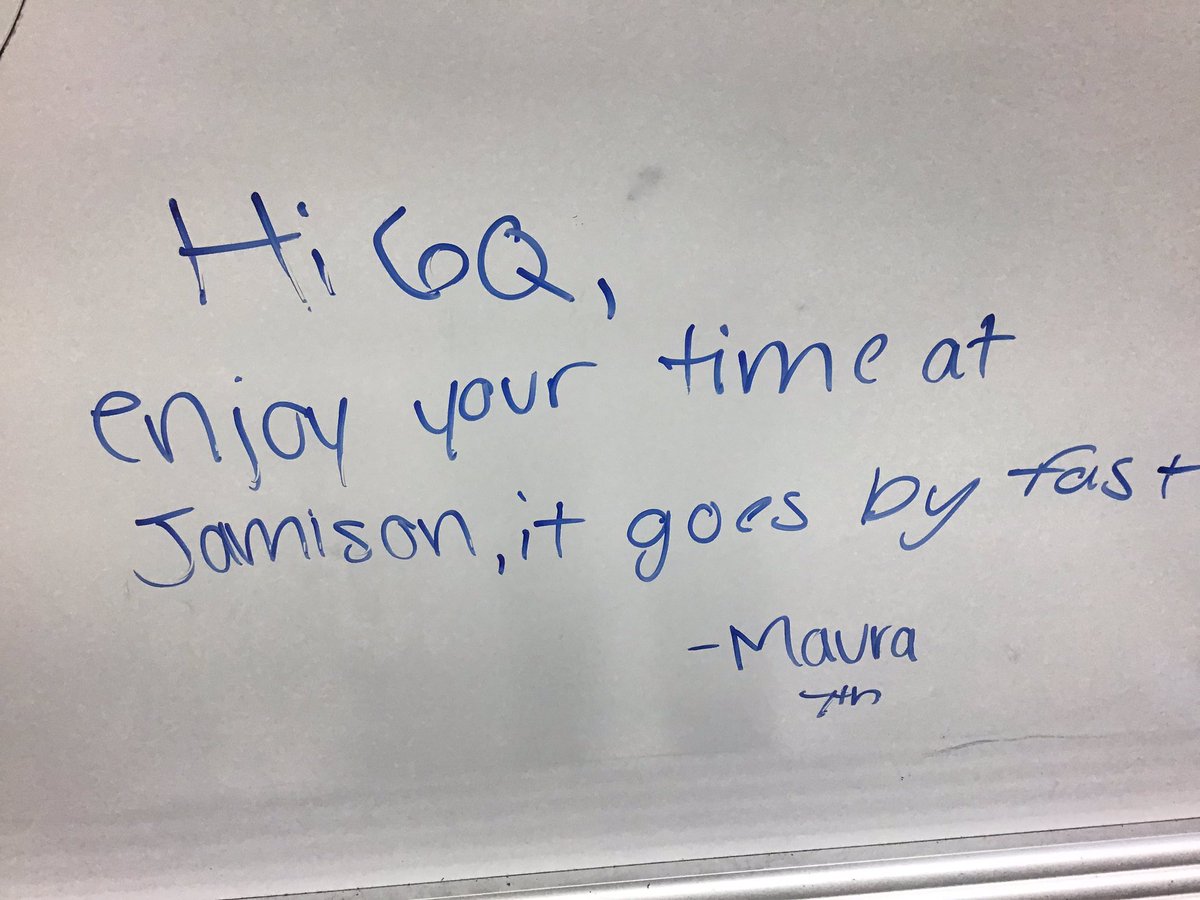 Hi 6Q,
enjoy your time at
Jamison, it goes by fast
-Maura
7th